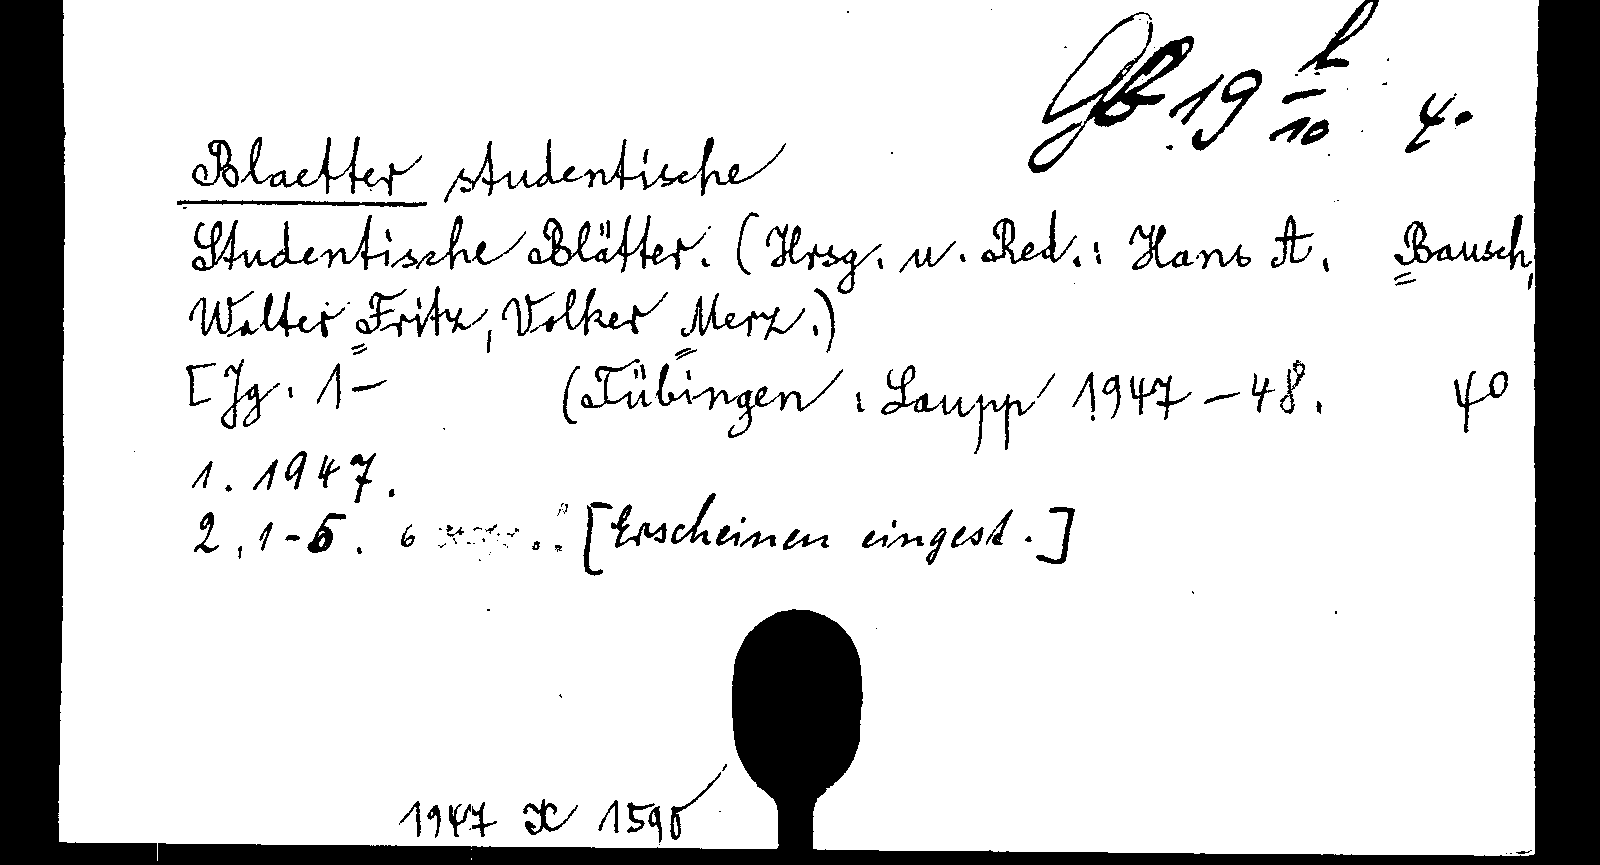 Gb 19 h/10 4.
Blaetter studentische
Studentische Blätter. (Hrsg. u. Red.: Hans A. Bausch,
Walter Fritz, Volker Merz.)
[Jg. 1- (Tübingen: Laupp 1947-48. 4°
1. 1947.
2, 1-6. 6 [Erscheinen eingest.]
1947 X 1590